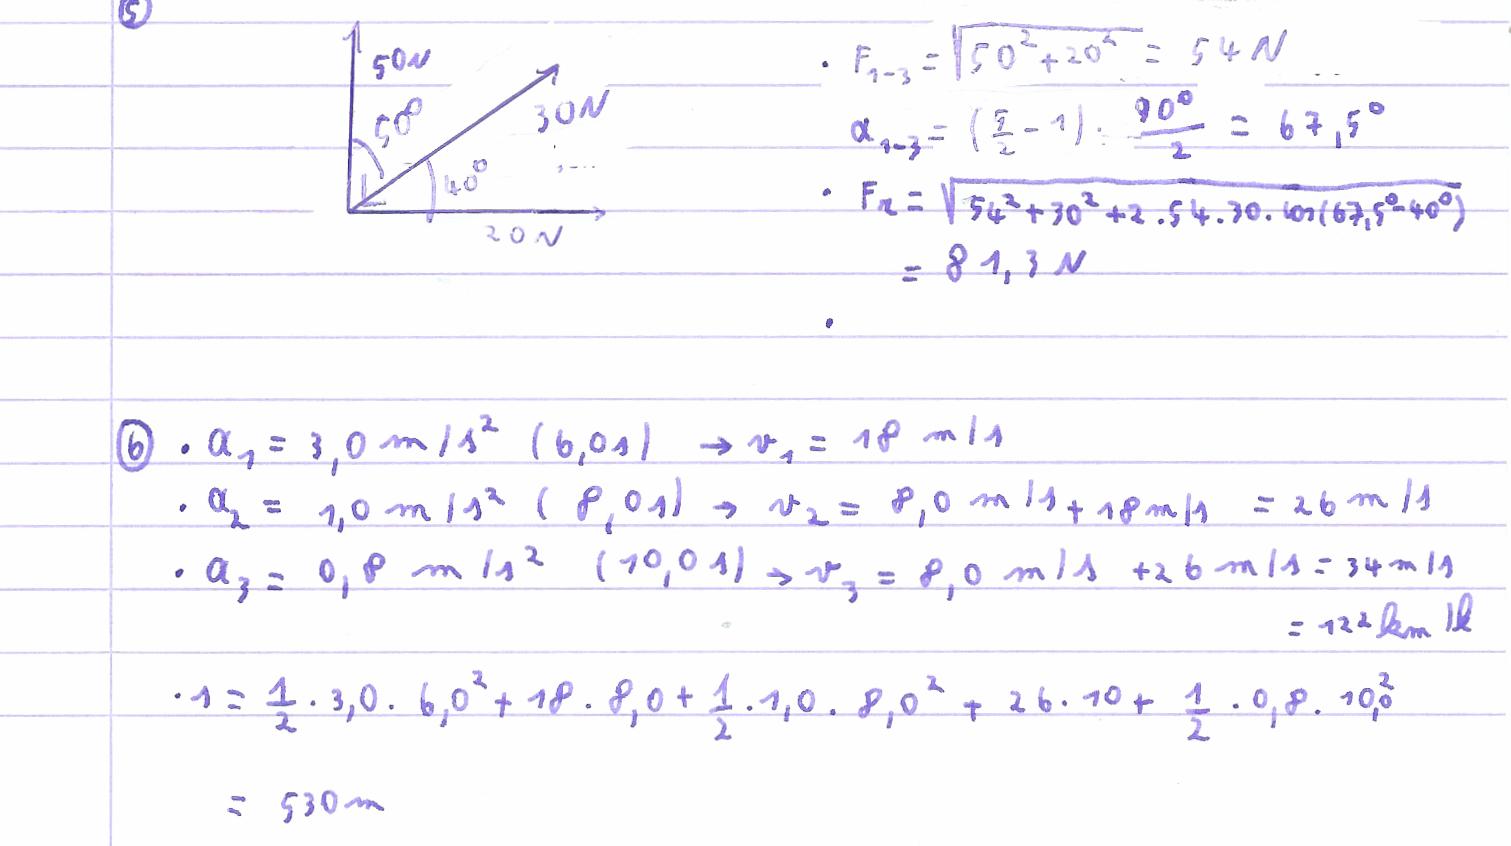 5
50N
50°
30N
40°
20N
. F₁₋₃ = √(50² + 20²) = 54 N
α₁₋₃ = (5/2 - 1) · 90°/2 = 67,5°
. Fᵣ = √(54² + 30² + 2.54.30. cos(67,5° - 40°))
= 81,3 N
.
6 . a₁ = 3,0 m/s² (6,0s) → v₁ = 18 m/s
. a₂ = 1,0 m/s² (8,0s) → v₂ = 8,0 m/s + 18m/s = 26 m/s
. a₃ = 0,8 m/s² (10,0s) → v₃ = 8,0 m/s + 26 m/s = 34 m/s
= 122 km/h
. s = 1/2 . 3,0 . 6,0² + 18 . 8,0 + 1/2 . 1,0 . 8,0² + 26 . 10 + 1/2 . 0,8 . 10,0²
= 530 m